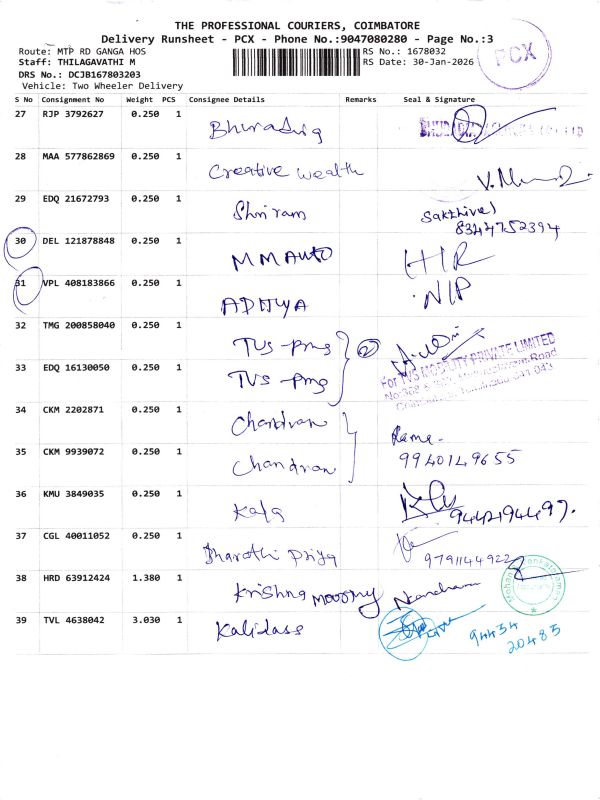 THE PROFESSIONAL COURIERS, COIMBATORE
Delivery Runsheet - PCX - Phone No.:9047080280 - Page No.:3
Route: MTP RD GANGA HOS
RS No.: 1678032
Staff: THILAGAVATHI M
RS Date: 30-Jan-2026
DRS No.: DCJB167803203
Vehicle: Two Wheeler Delivery
PCX
S No Consignment No Weight PCS Consignee Details Remarks Seal & Signature
27 RJP 3792627 0.250 1
28 MAA 577862869 0.250 1 Creative wealth
29 EDQ 21672793 0.250 1 Shriram Sakthivel
8344752394
30 DEL 121878848 0.250 1 MMAUTO
31 VPL 408183866 0.250 1 ADITHYA N/P
32 TMG 200858040 0.250 1 TVS-pmg 2
For TVS MOBILITY PRIVATE LIMITED
33 EDQ 16130050 0.250 1 TVS-pmg
34 CKM 2202871 0.250 1 Chandran Rama
35 CKM 9939072 0.250 1 Chandran 9940149655
36 KMU 3849035 0.250 1 Kala
37 CGL 40011052 0.250 1 Bharathi priya 9791144922
38 HRD 63912424 1.380 1 Krishna Moorthy
39 TVL 4638042 3.030 1 Kalidass 94434
20485